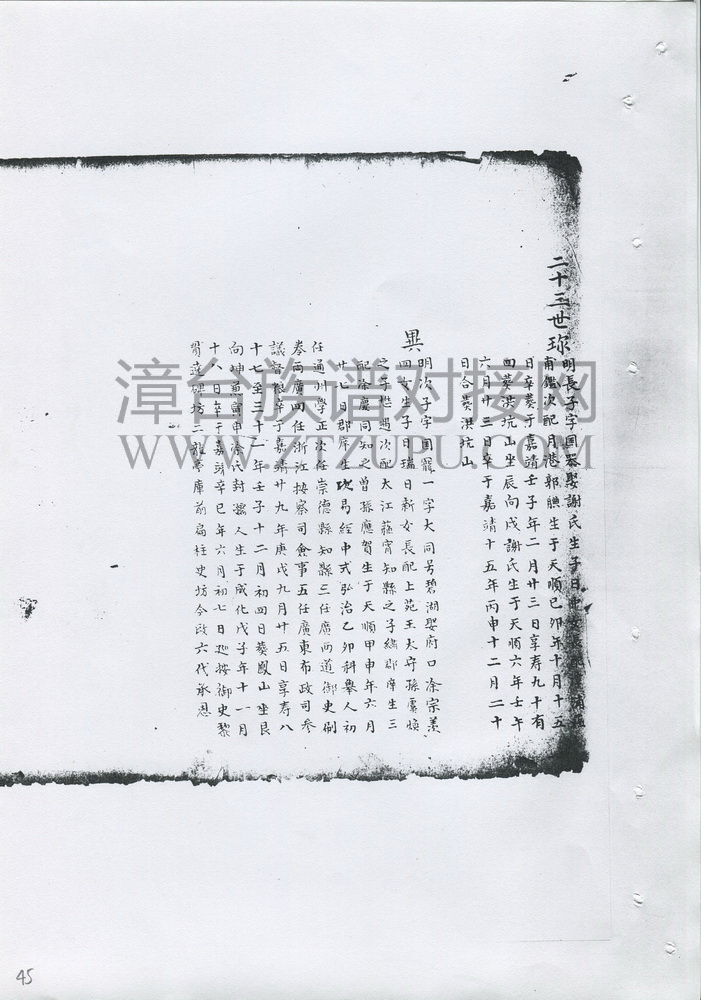 二十三世珎
明長子字国器娶謝氏生子日
甫鑑次配月港郭聰生于天順己卯年十月十五
日卒葵于嘉靖壬子年二月廿三日享寿九十有
四葵洪坑山坐辰向戌謝氏生于天順六年壬午
六月廿三日卒于嘉靖十五年丙申十二月二十
日合葵洪坑山
異
明次子字国寵一字大同号碧湖娶府口凃宗羡
四女生子日瑞日新女長配上苑王太守孫虞煩
之子懋賜次配太江蘓宵知縣之子緒郡庠生三
配凃慶同知之曾孫應賀生于天順甲申年六月
廿七日郡庠生攻易經中式弘治乙卯科舉人初
任通州學正次任崇德縣知縣三任廣西道御史刷
卷兩廣四任浙江按察司僉事五任廣東布政司参
議致仕卒于嘉靖廿九年庚戌九月廿五日享寿八
十七至三十一年壬子十二月初四日葵鳳山坐艮
向坤兼寅申凃氏封孺人生于成化戊子年十一月
十八日卒于嘉靖辛巳年六月初七日廵按御史黎
貫逹牌坊二座學庫前扁柱史坊今改六代承恩
漳台族谱对接网
WWW.ZTZUPU.COM
45